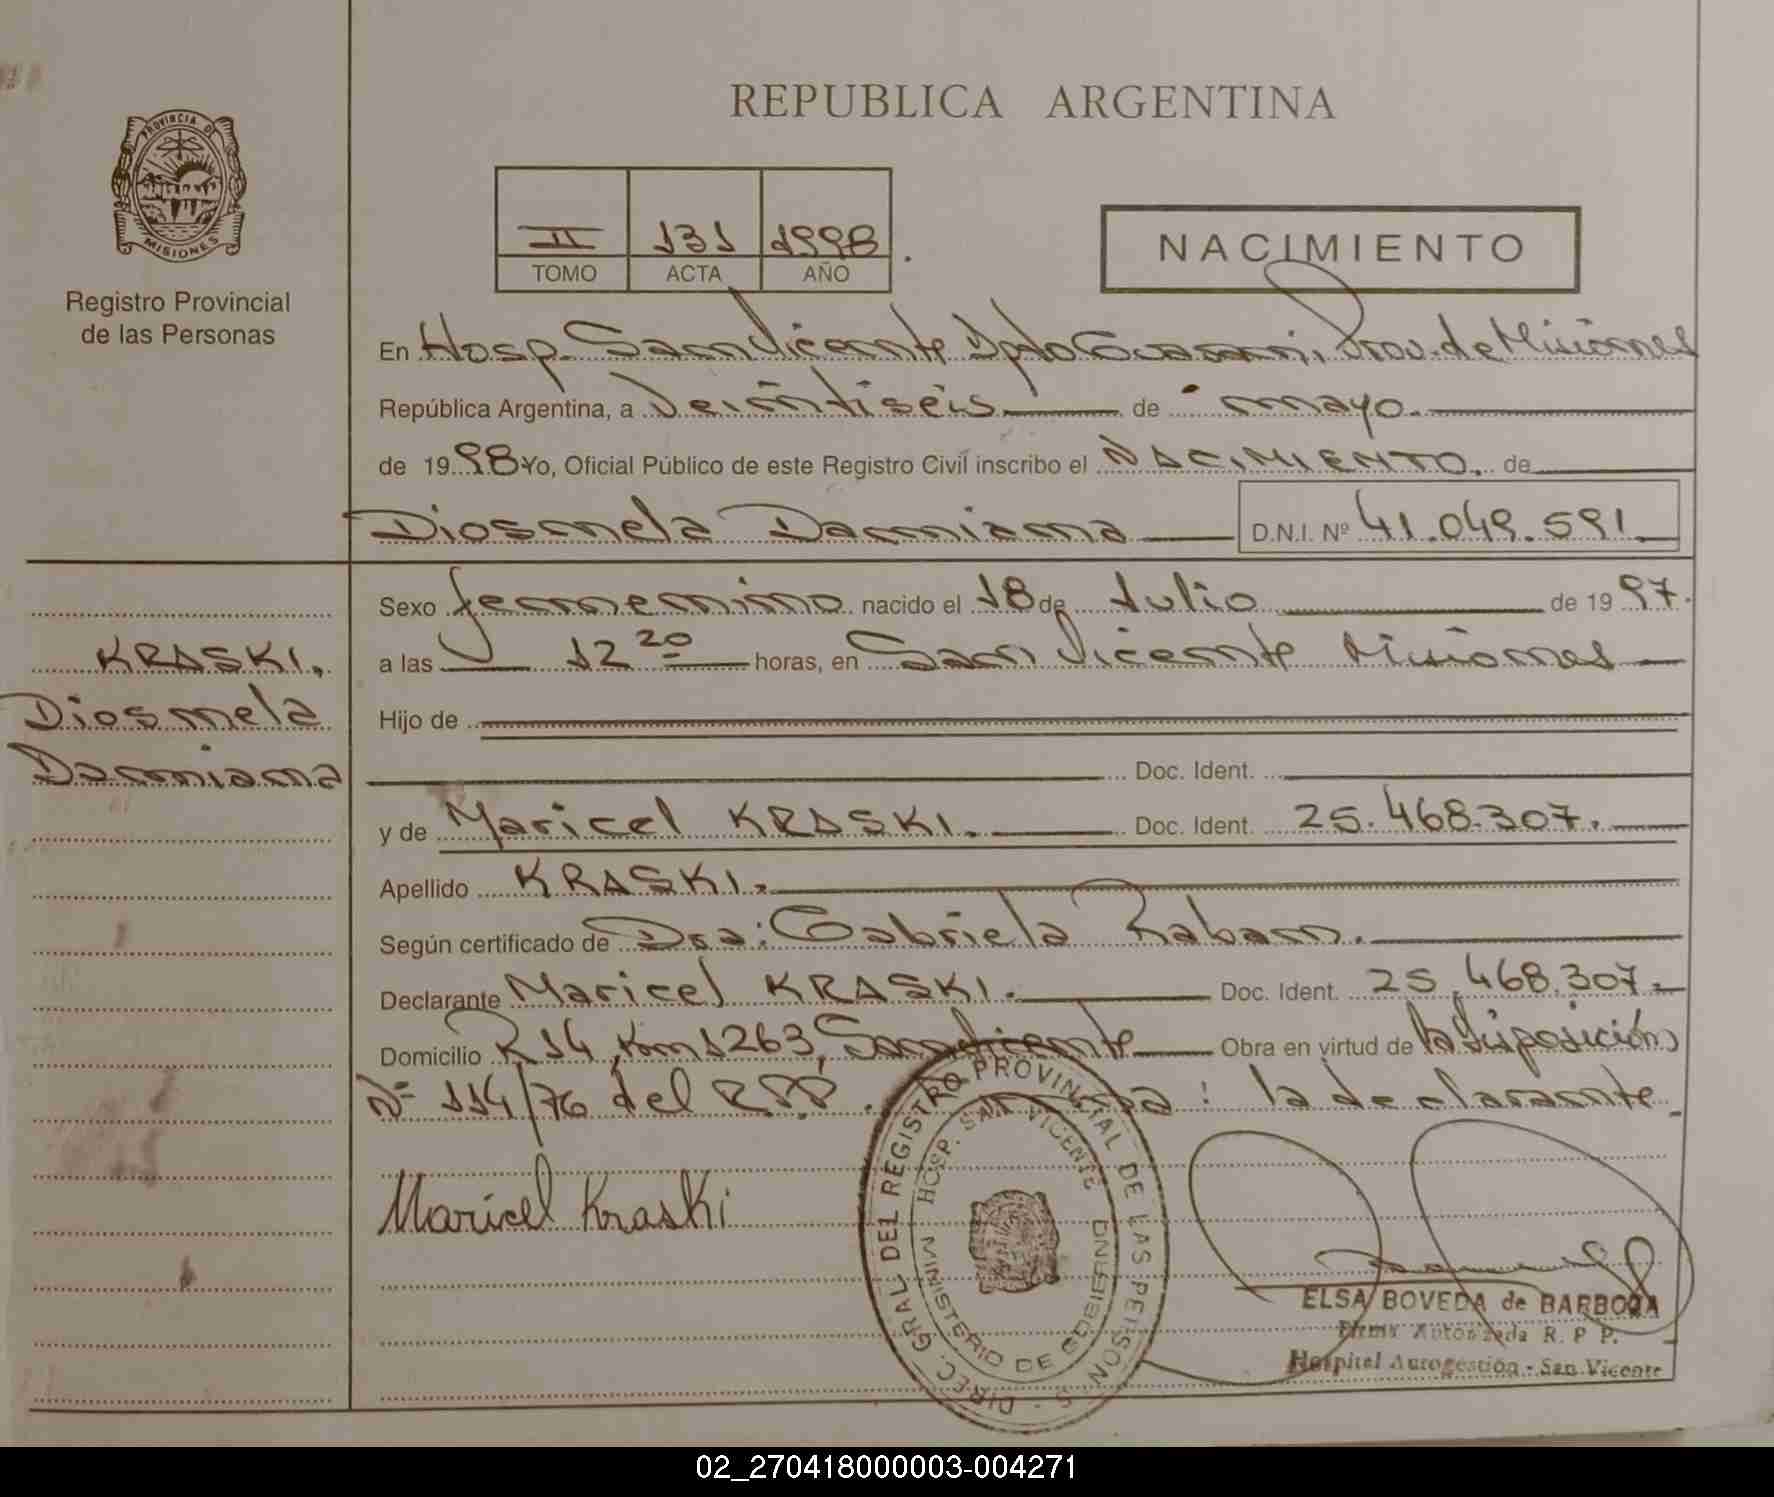 REPUBLICA ARGENTINA
PROVINCIA DE
MISIONES
Registro Provincial
de las Personas
II 131 1998
TOMO ACTA AÑO
NACIMIENTO
En Hosp. San Vicente Dpto Guarani, Prov. de Misiones
República Argentina, a Veintiseis de mayo.
de 1998 Yo, Oficial Público de este Registro Civil inscribo el NACIMIENTO. de
Diosmela Damiana D.N.I. Nº 41.049.591
Sexo femenino nacido el 18 de Julio de 1997.
a las 12 20 horas, en San Vicente Misiones
Hijo de
Doc. Ident.
y de Maricel KRASKI. Doc. Ident. 25.468.307.
Apellido KRASKI.
Según certificado de Dra: Gabriela Raban.
Declarante Maricel KRASKI. Doc. Ident. 25.468.307.
Domicilio R14, Km 1263, San Vicente Obra en virtud de la disposición
Nº 114/76 del RPP. : la declarante
KRASKI,
Diosmela
Damiana
Maricel Kraski
DIREC. GRAL DEL REGISTRO PROVINCIAL DE LAS PERSONAS
HOSP. SAN VICENTE
MINISTERIO DE GOBIERNO
ELSA BOVEDA de BARBOZA
Firma Autorizada R. P. P.
Hospital Autogestión - San Vicente
02_270418000003-004271